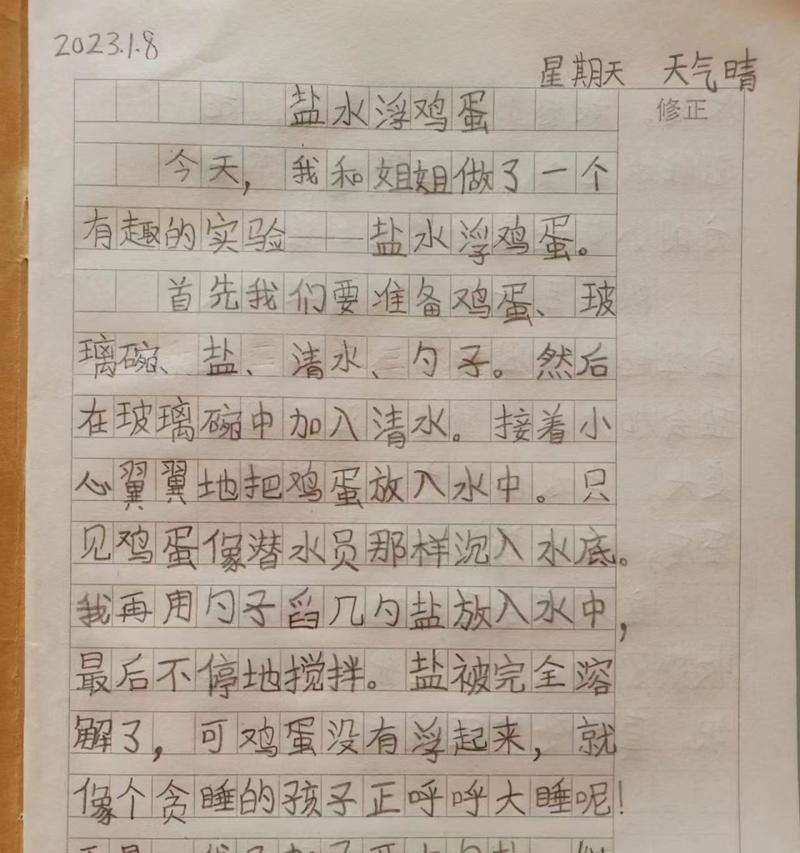 2023.1.8
星期天 天气晴
修正
盐水浮鸡蛋
今天，我和姐姐做了一个
有趣的实验——盐水浮鸡蛋。
首先我们要准备鸡蛋、玻
璃碗、盐、清水、勺子。然后
在玻璃碗中加入清水。接着小
心翼翼地把鸡蛋放入水中。只
见鸡蛋像潜水员那样沉入水底。
我再用勺子舀几勺盐放入水中，
最后不停地搅拌。盐被完全溶
解了，可鸡蛋没有浮起来，就
像个贪睡的孩子正呼呼大睡呢！